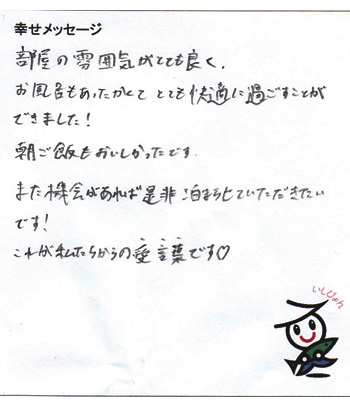 幸せメッセージ
部屋の雰囲気がとても良く、
お風呂もあったかくて とても快適に過ごすことが
できました！
朝ご飯もおいしかったです.
また機会があれば是非 泊まらせていただきたい
です！
これが私たちからの愛言葉です♡
いしぴょん